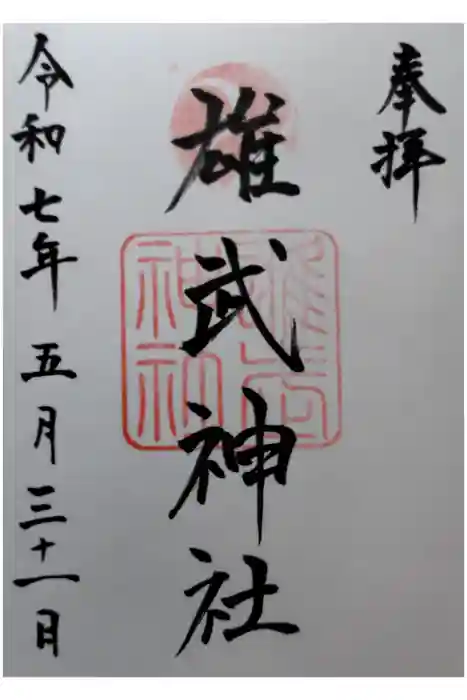 奉拝
雄武神社
令和七年五月三十一日
雄武
神社